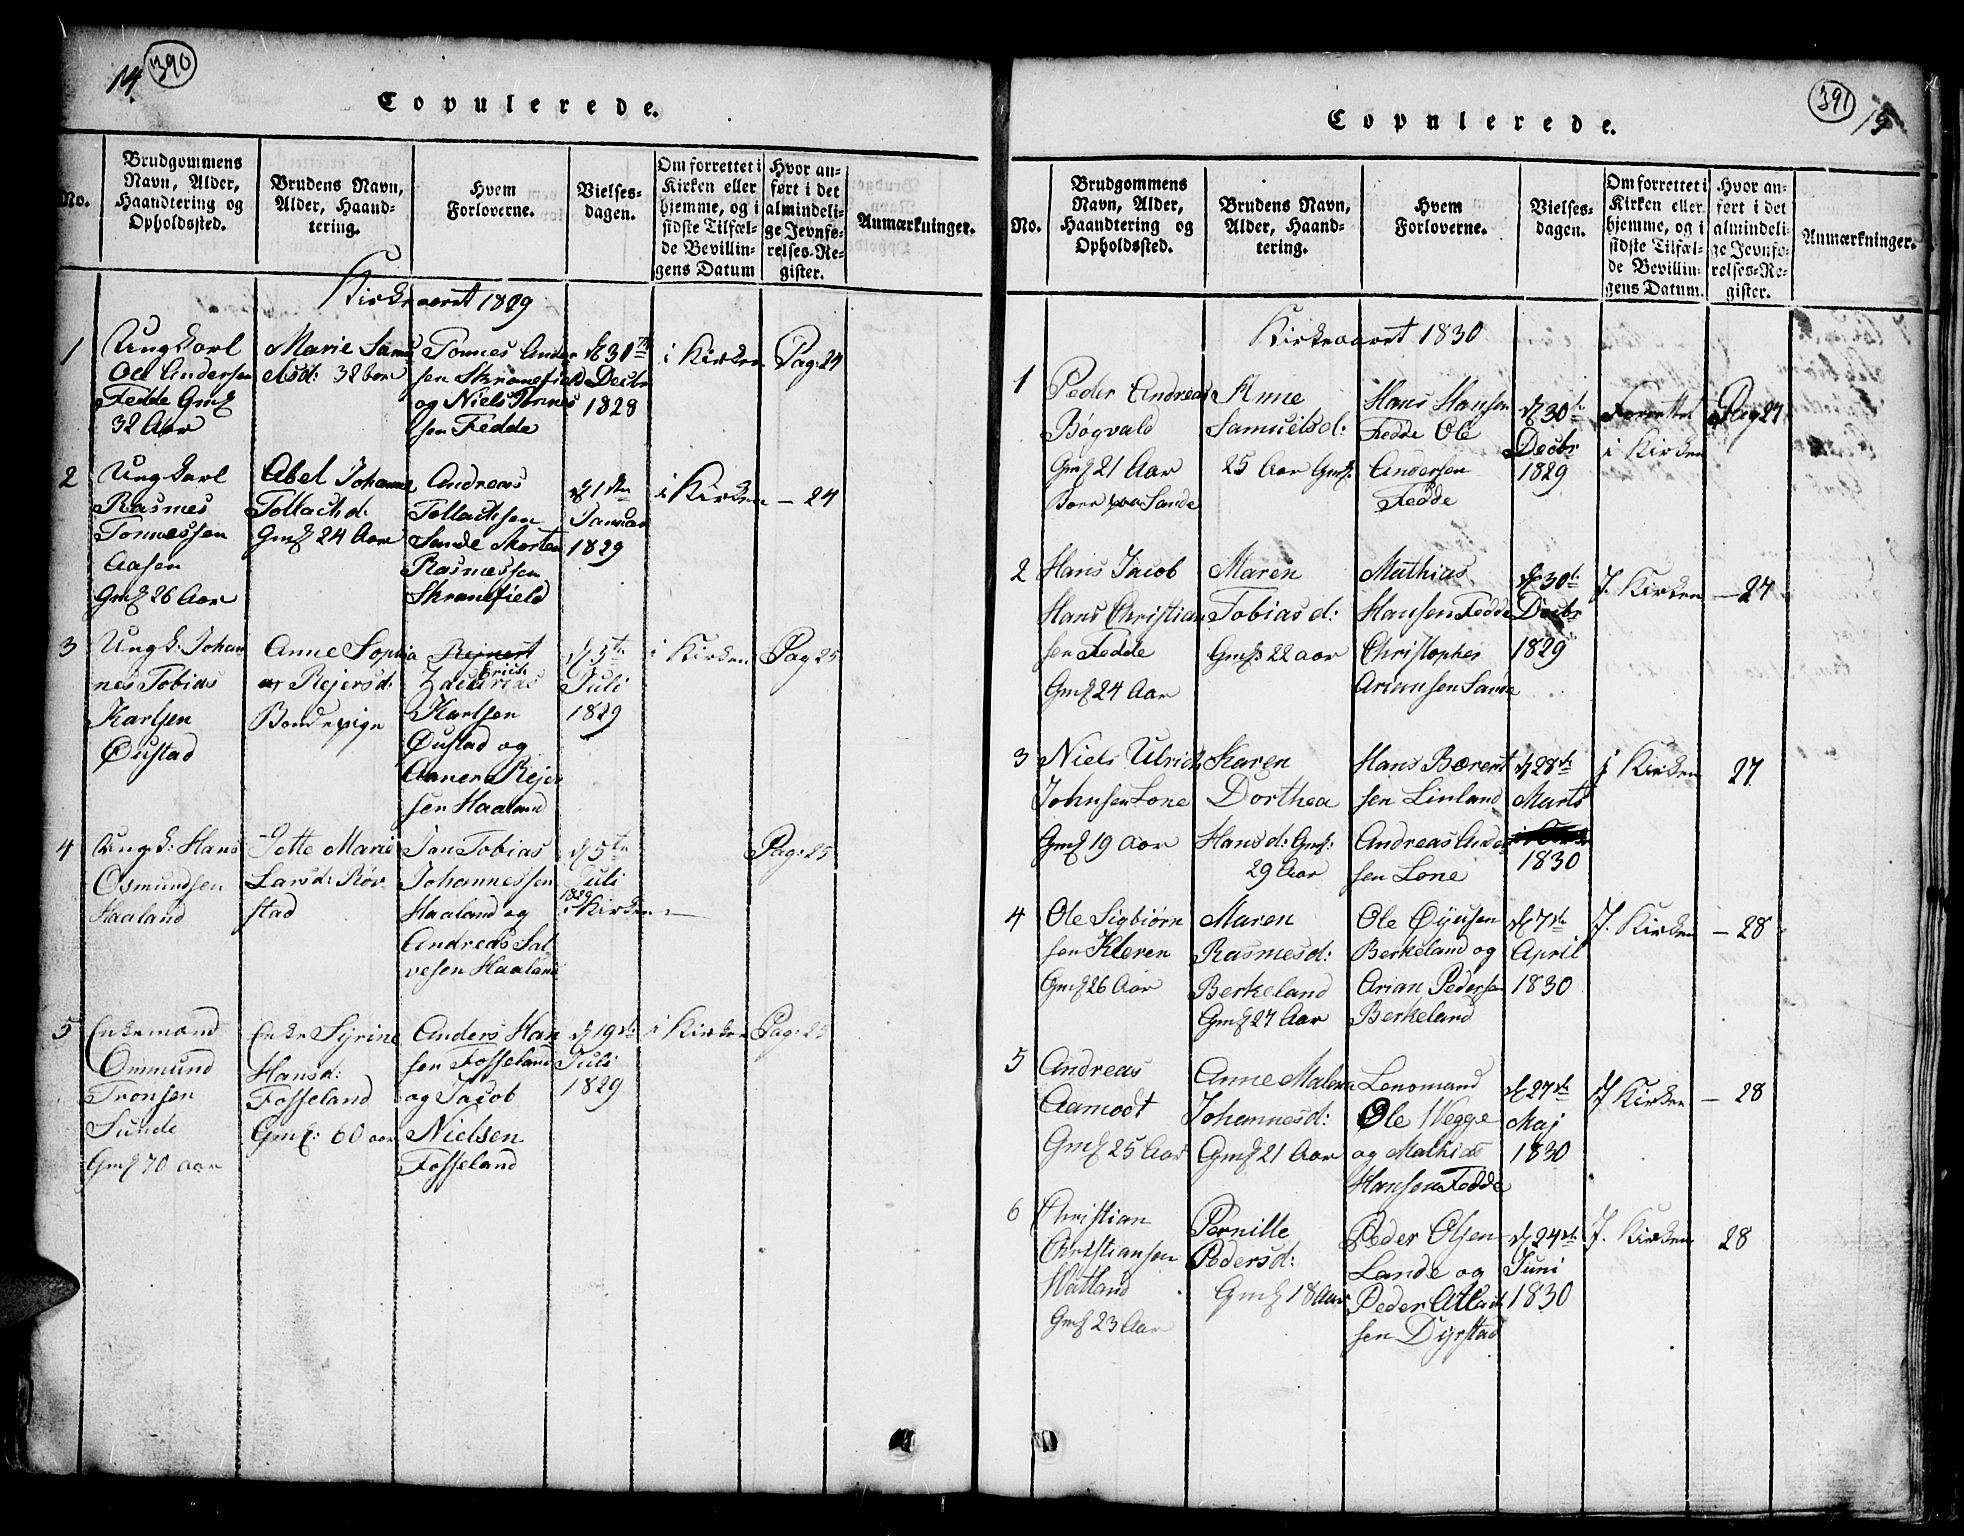 14. 390
Copulerede.
No.
Brudgommens
Navn, Alder,
Haandtering og
Opholdssted.
Brudens Navn,
Alder, Haand-
tering.
Hvem
Forloverne.
Vielses-
dagen.
Om forrettet i
Kirken eller
hjemme, og i
sidste Tilfæl-
de Bevillin-
gens Datum
Hvor an-
ført i det
almindeli-
ge Jevnfø-
relses-Re-
gister.
Anmærkninger.
Kirkeaaret 1829
1
Ungkarl
Ole Andersen
Fedde Gml
32 Aar
Marie Samu
elsd: 32 aar
Tonnes Ander
sen Skranefield
og Niels Tonnes
sen Fedde
d 31te
Decbr
1828
i Kirken
Pag: 24
2
Ungkarl
Rasmes
Tonnessen
Aasen
Gml 26 Aar
Abel Johanne
Tollachd:
Gml 24 Aar
Andreas
Tollachsen
Sande Morten
Rasmessen
Skranefield
d 1ste
Januar
1829
i Kirken
- 24
3
Ungk: Johan
nes Tobias
Karlsen
Øustad
Anne Sophia
Rejersd:
Bondepige
Rejnert
Erich
Zacarias
Karlsen
Øustad og
Anners Rejer
sen Haaland
d 5te
Juli
1829
i Kirken
Pag 25
4
Ungk: Hans
Osmundsen
Haaland
Jette Marie
Larsd: Røv
stad
Jan Tobias
Johannessen
Haaland og
Andreas Sal
vesen Haaland
d 5te
Juli
1829
i Kirken
Pag: 25
5
Enkemand
Ommund
Tronsen
Sunde
Gml 70 aar
Enke Syrine
Hansd:
Fosseland
Gml: 60 aar
Anders Han
sen Fosseland
og Jacob
Nielsen
Fosseland
d 19de
Juli
1829
i Kirken
Pag: 25
391 15
Copulerede.
No.
Brudgommens
Navn, Alder,
Haandtering og
Opholdssted.
Brudens Navn,
Alder, Haand-
tering.
Hvem
Forloverne.
Vielses-
dagen.
Om forrettet i
Kirken eller
hjemme, og i
sidste Tilfæl-
de Bevillin-
gens Datum.
Hvor an-
ført i det
almindeli-
ge Jevnfø-
relses-Re-
gister.
Anmærkninger.
Kirkeaaret 1830
1
Peder Andreas
Bøgvald
Gml 21 Aar
Boer paa Sande
Anne
Samuelsd:
25 Aar Gml:
Hans Hansen
Fedde Ole
Andersen
Fedde
d 30te
Decbr
1829
Forrettet
i Kirken
Pag 24
2
Hans Jacob
Hans Christian
sen Fedde
Gml 24 Aar
Maren
Tobiasd:
Gml: 22 aar
Mathias
Hansen Fedde
Christopher
Ariansen Sande
d 30te
Decbr
1829
J. Kirken
- 24
3
Niels Ulrich
Johnsen Lone
Gml 19 Aar
Karen
Dorthea
Hansd: Gml:
29 Aar
Hans Bærent
sen Linland
Andreas Ander
sen Lone
d 28de
Marts
1830
i Kirken
27
4
Ole Sigbiørn
sen Kleven
Gml 26 Aar
Maren
Rasmesd:
Berkeland
Gml 27 Aar
Ole Øyusen
Berkeland og
Arian Pedersen
Berkeland
d 7de
April
1830
J. Kirken
- 28
5
Andreas
Aamodt
Gml 25 Aar
Anne Malena
Johannesd:
Gml 21 Aar
Lensmand
Ole Wegge
og Mathias
Hansen Fedde
d 27de
Maj
1830
J Kirken
- 28
6
Christian
Christiansen
Watland
Gml 23 Aar
Pernille
Pedersd:
Gml 18 Aar
Peder Olsen
Lande og
Peder Atlach
sen Dyrstad
d 24de
Juni
1830
J. Kirken
28